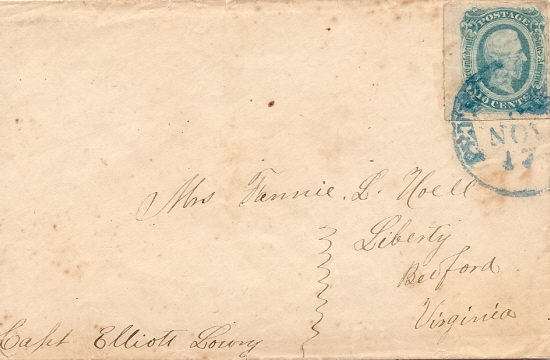 POSTAGE
Confederate States of America
10 CENTS
NOV
17
Mrs Fannie. L. Noell
Liberty
Bedford
Virginia
Capt Elliott Lowry